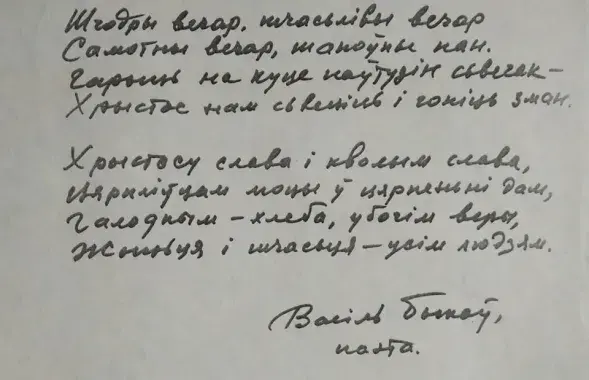 Шчодры вечар, шчасьлівы вечар
Самотны вечар, шаноўны пан.
Гарыць на куце паўтузін сьвечак —
Хрыстос нам сьвеціць і гоніць зман.
Хрыстосу слава і кволым слава,
Цярпліўцам моцы ў цярпеньні дам,
Галодным — хлеба, убогім веры,
Жыцьця і шчасьця — усім людзям.
Васіль Быкаў,
паэта.